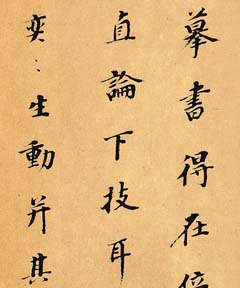 摹書得在位
直論下技耳
奕〻生動并其